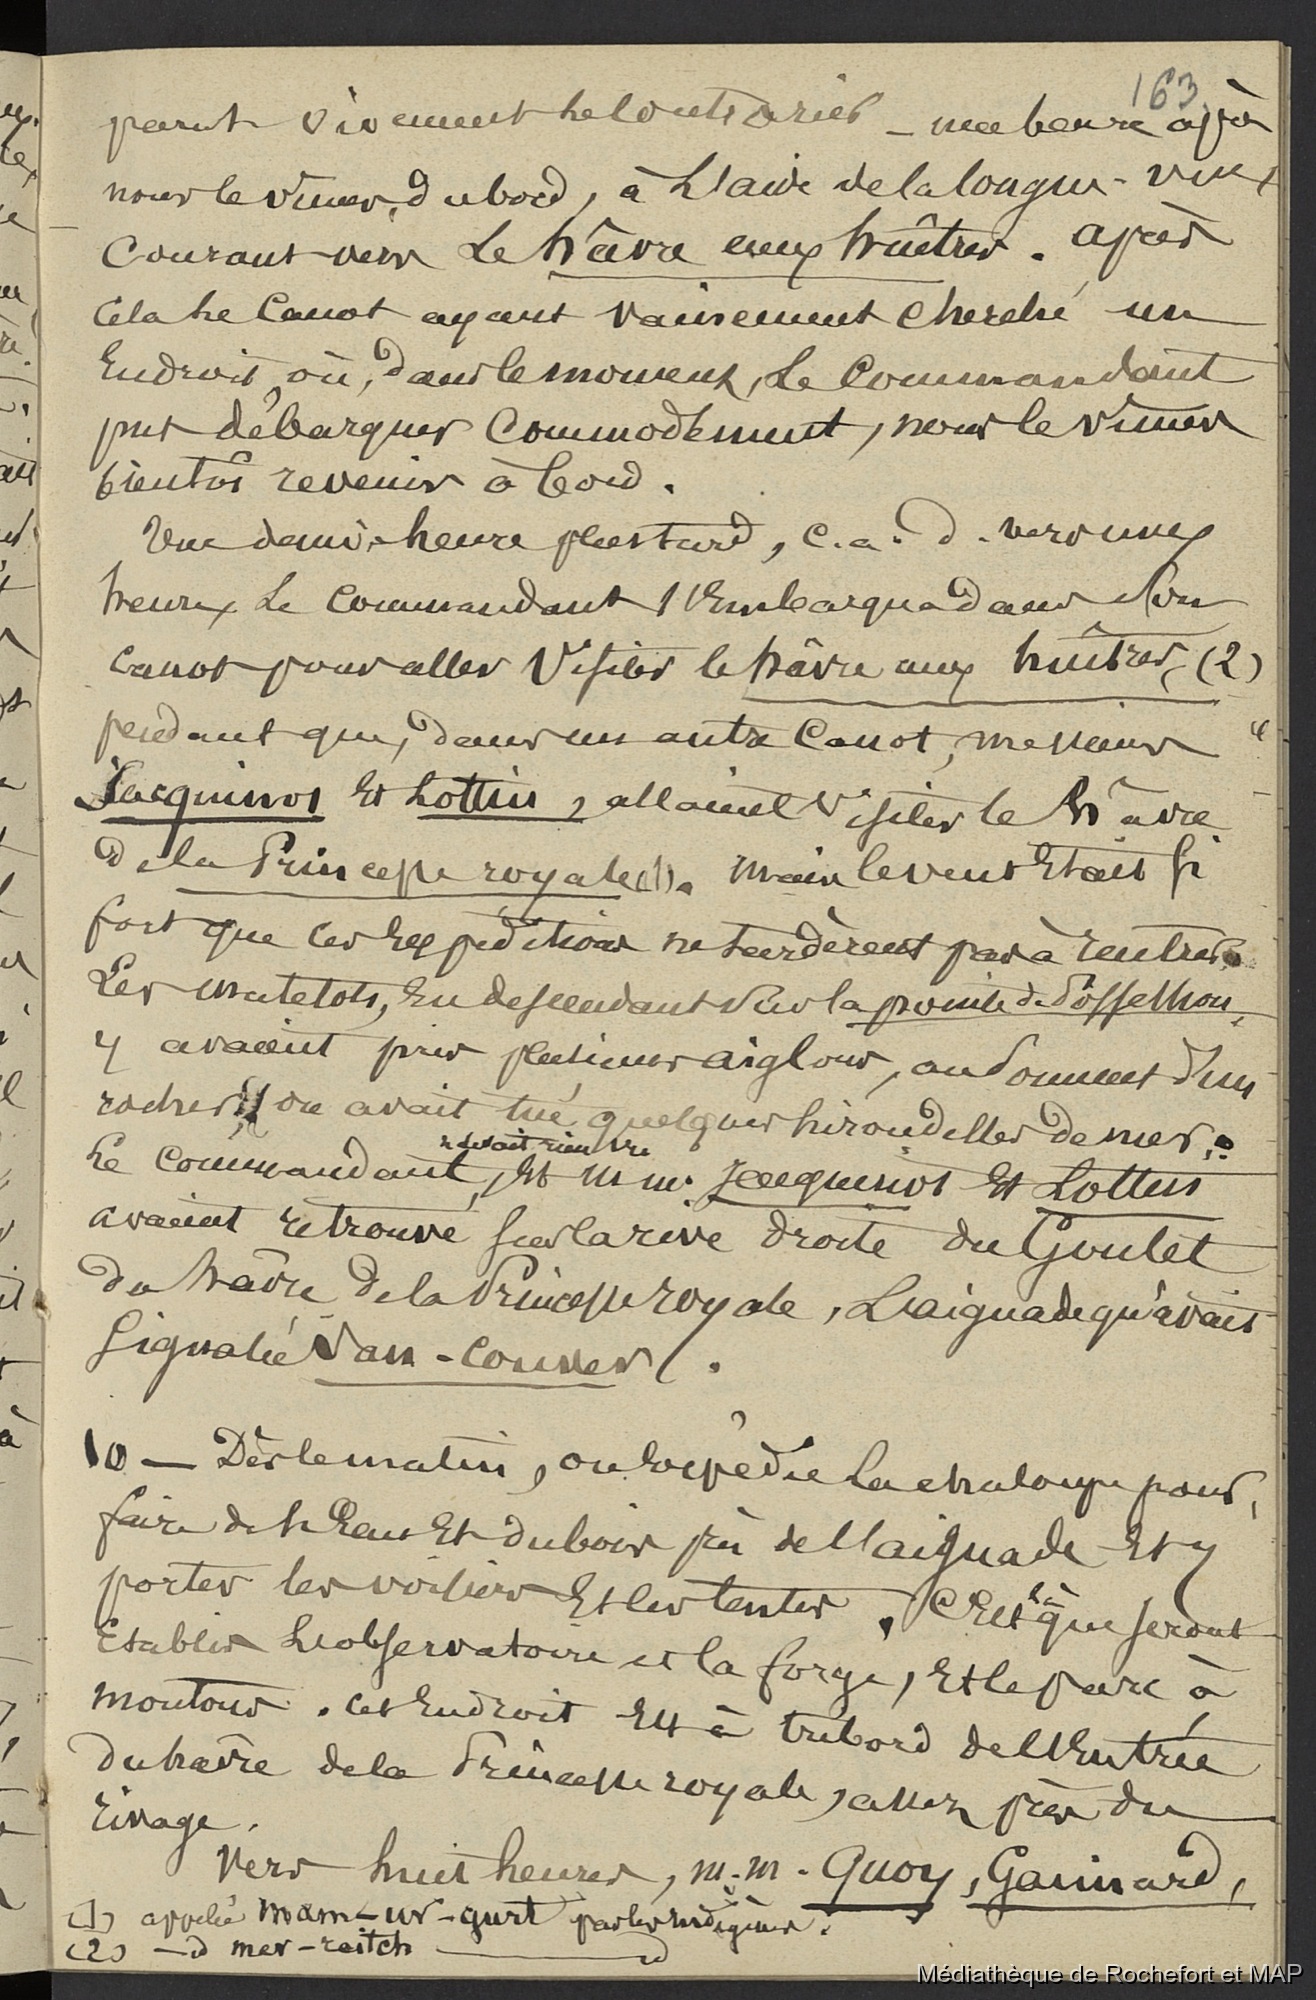 163
parut vivement le contrarier _ une heure après
nous le vîmes, du bord, à l'aide de la longue-vue,
courant vers le hâvre aux huîtres. après
cela le canot ayant vainement cherché un
endroit, où, dans le moment, le commandant
put débarquer commodément, nous le vîmes
bientôt revenir à bord.
Une demi-heure plus tard, c.a.d. vers onze
heures, le commandant s'embarqua dans son
canot pour aller visiter le hâvre aux huîtres, (2)
pendant que, dans un autre canot, messieurs
Jacquinot et Lottin, allaient visiter le hâvre
de la Princesse royale (1). mais le vent était si
fort que ces expéditions ne tardèrent pas à rentrer.
Les matelots, en descendant sur la pointe de Possession,
y avaient pris plusieurs aiglons, au sommet d'un
rocher, on avait tué quelques hirondelles de mer.
n'avait rien vu
Le commandant, et m.m. Jacquinot et Lottin
avaient retrouvé sur la rive droite du Goulet
du hâvre de la Princesse royale, l'aiguade qu'avait
signalée Van-couver.
10 — Dès le matin, on expédie la chaloupe pour
faire de l'eau et du bois près de l'aiguade et y
porter les voiliers et les tentes. C'est là que seront
établis l'observatoire et la forge, et le parc à
moutons. cet endroit est à tribord de l'entrée
du hâvre de la Princesse royale, assez près du
rivage.
Vers huit heures, m.m. Quoy, Gaimard,
(1) appelé mam-ur-gurt par les indigènes.
(2) _d mer-reitch _d
Médiathèque de Rochefort et MAP